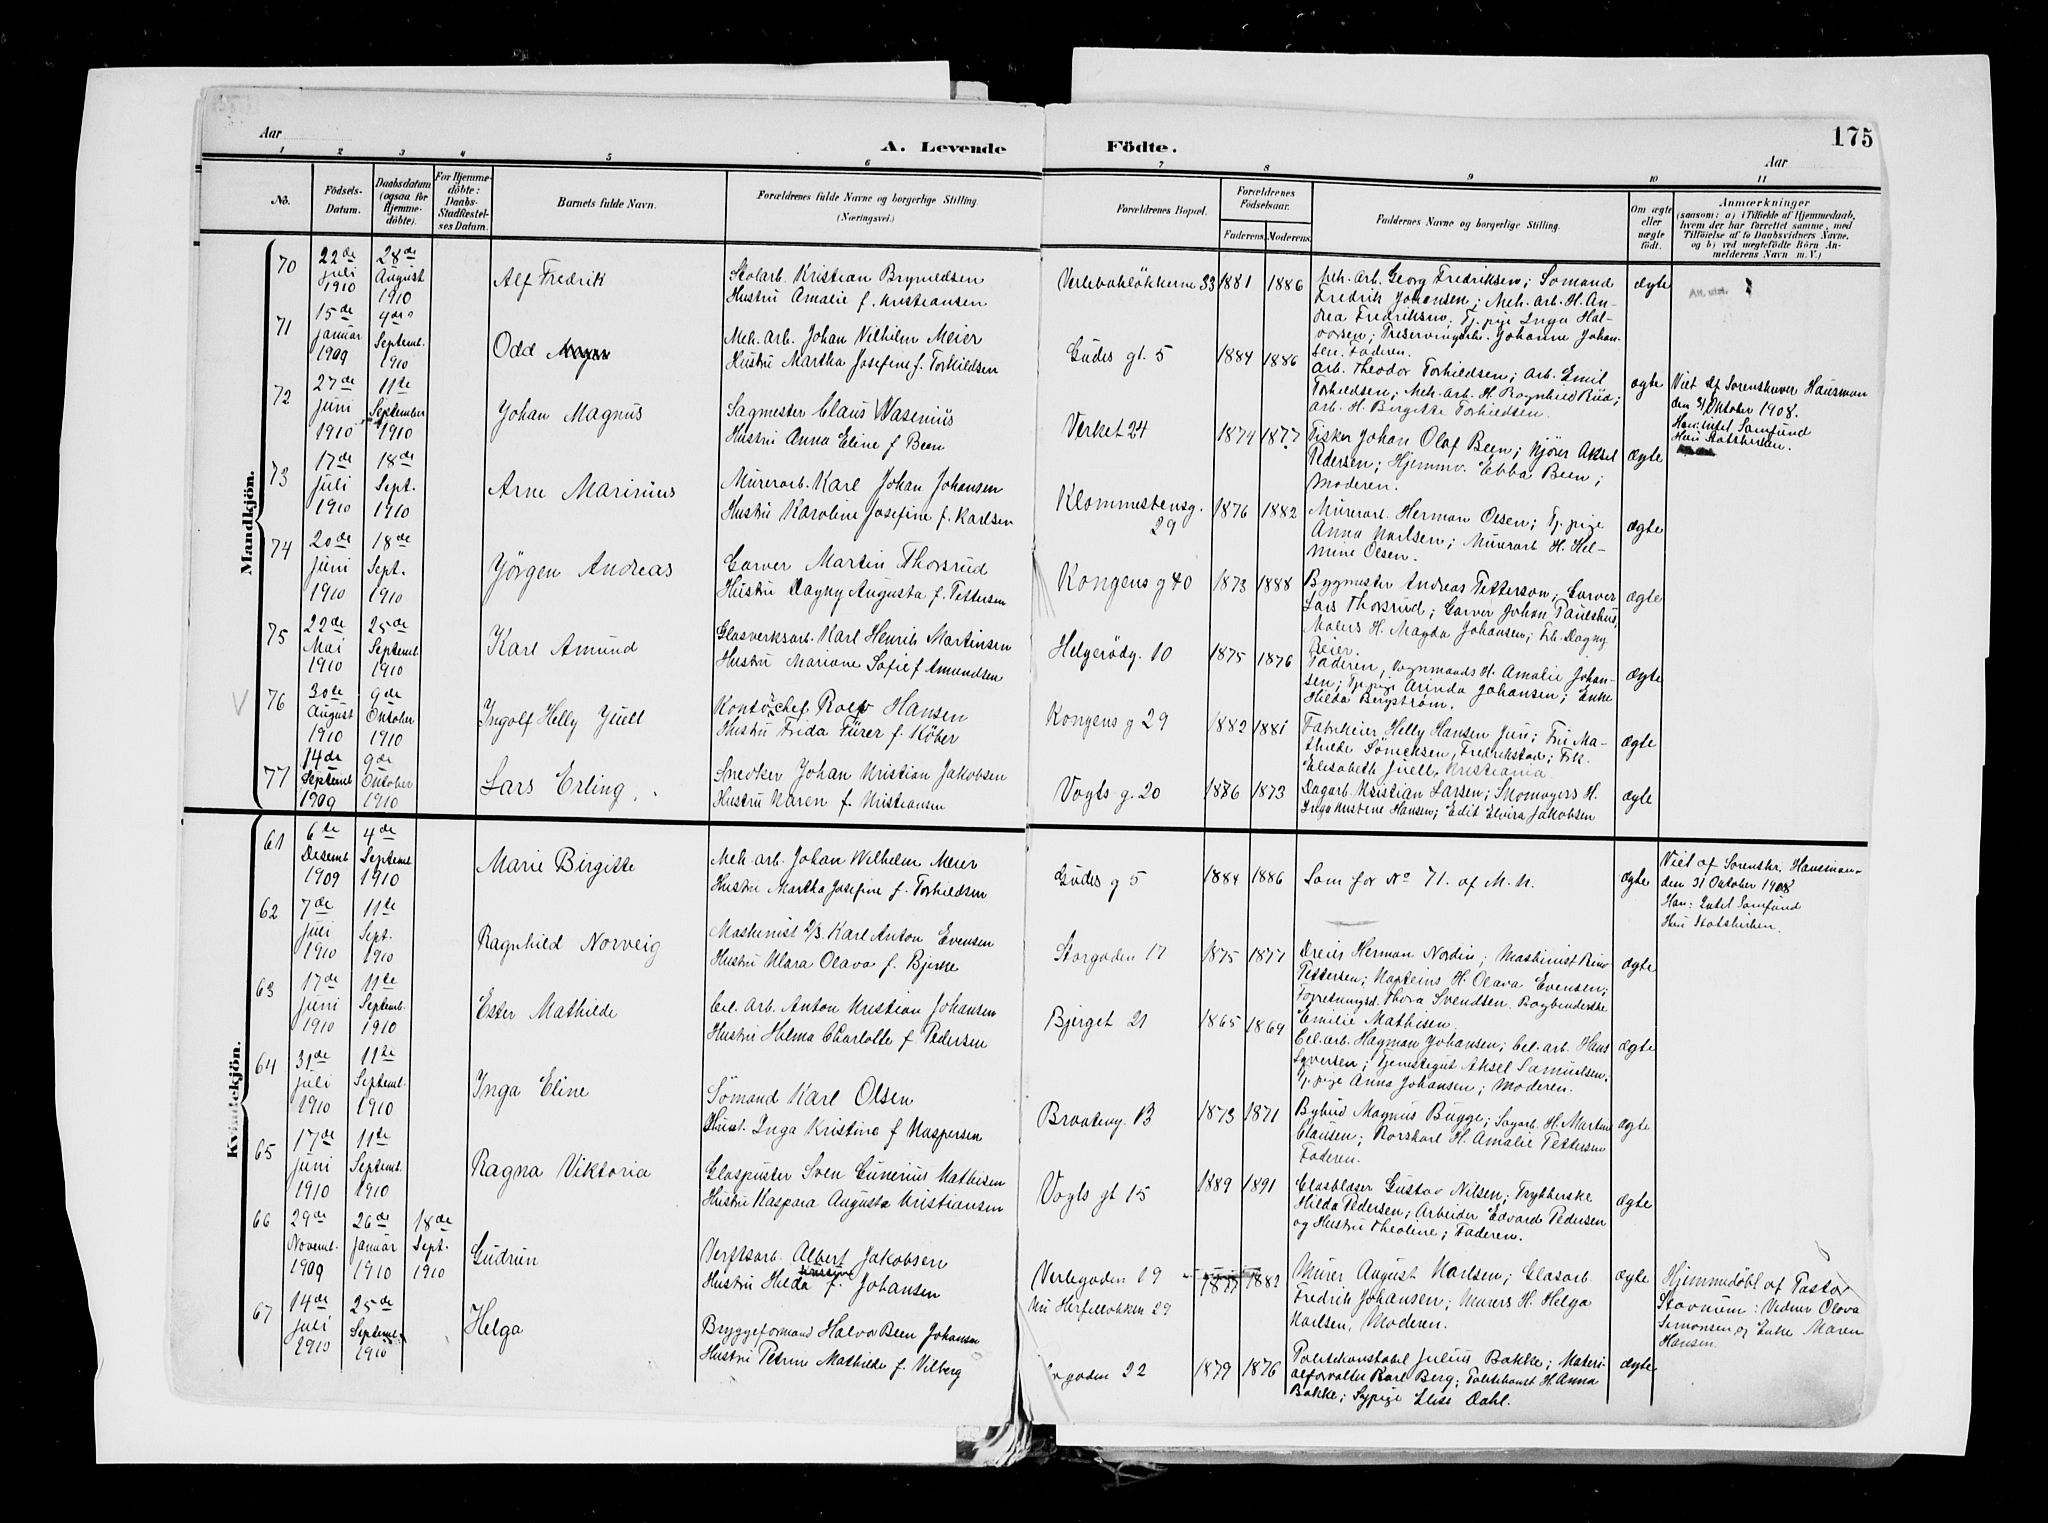 175
Aar
A. Levende Födte.
Aar
1 2 3 4 5 6 7 8 9 10 11
No.
Födsels-
Datum.
Daabsdatum
(ogsaa for
Hjemme-
döbte).
For Hjemme-
döbte:
Daabs-
Stadfæstel-
ses Datum.
Barnets fulde Navn.
Forældrenes fulde Navne og borgerlige Stilling
(Næringsvei.)
Forældrenes Bopæl.
Forældrenes
Födselsaar.
Faderens. Moderens.
Faddernes Navne og borgerlige Stilling.
Om ægte
eller
uægte
födt.
Anmærkninger
(saasom: a) i Tilfælde af Hjemmedaab,
hvem der har forrettet samme, med
Tilföielse af to Daabsvidners Navne,
og b) ved uægtefödte Börn An-
melderens Navn m. V.)
Mandkjön.
70
22de
juli
1910
28de
August
1910
Alf Fredrik
Kristian Brynildsen
Hustru Amalie f. Kristiansen
33
1881 1886
Mek. arb. Georg Fredriksen; Sömand
Fredrik Johansen; Mek. arb. H. An-
drea Fredriksen; Tj. pige Inga Hal-
vorsen; Johanne Johan-
sen. Faderen.
ægte
71
15de
Januar
1909
4de
Septemb.
1910
Odd
Mek. Arb. Johan Vilhelm Meier
Hustru Martha Josefine f. Torkildsen
Gudes gt. 5
1884 1886
Arb. Theodor Torkildsen; Arb. Emil
Torkildsen; Mek. arb. H. Ragnhild Rud;
Arb. H. Birgitte Torkildsen.
ægte
Viet af Sorenskriver Hansman
den 31 Oktober 1908.
Han: Intet Samfund
Hun Statskirken.
72
27de
Juni
1910
11te
September
1910
Johan Magnus
Sagmester Claus Wasenius
Hustru Anna Eline f Been
Verket 24
1874 1877
Fisker Johan Olaf Been; Kjörer Aksel
Pedersen; Hjemmv. Ebba Been;
Moderen.
ægte
73
17de
Juli
1910
18de
Sept.
1910
Arne Marinius
Murerarb. Karl Johan Johansen
Hustru Karoline Josefine f. Karlsen
Klommestensg.
29
1876 1882
Murerarb. Herman Olsen; Tj. pige
Anna Karlsen; Murerarb H. Hel-
mine Olsen.
ægte
74
20de
Juni
1910
18de
Sept.
1910
Jörgen Andreas
Garver Martin Thorsrud
Hustru Dagny Augusta f. Pettersen
Kongens g 40
1873 1888
Bygmester Andreas Petterson; Garver
Lars Thorsrud; Garver Johan Paulshus,
Malers H. Magda Johansen; Frk. Dagny
Reier.
ægte
75
22de
Mai
1910
25de
Septemb.
1910
Karl Amund
Glasverksarb. Karl Henrik Martinsen
Hustru Mariane Sofie f Amundsen
Helgerödg. 10
1875 1876
Faderen; Vognmands H. Amalie Johan-
sen; Tj. pige Arinda Johansen; Enke
Hilda Bergström.
ægte
V
76
30te
August
1910
9de
Oktober
1910
Ingolf Helly Juell
Kontorchef Rolf Hansen
Hustru Frida Fürer f. Köber
Kongens g 29
1882 1881
Fabrikeier Helly Hansen jun; Fru Ma-
thilde Sömcksen, Fredrikstad; Frk.
Elisabeth Juell, Kristiania
ægte
77
14de
Septemb
1909
9de
Oktober
1910
Lars Erling.
Snedker Johan Kristian Jakobsen
Hustru Karen f. Kristiansen
Vogts g. 20
1876 1873
Dagarb. Kristian Larsen; Skomagers H.
Inga Kristine Hansen; Edit Elvira Jakobsen
ægte
Kvindekjön.
61
6te
Desemb
1909
4de
Septemb
1910
Marie Birgitte
Mek. arb. Johan Wilhelm Meier
Hustru Martha Josefine f. Torkildsen
Gudes g 5
1884 1886
Som for No 71. af M. K.
ægte
Viet af Sorenskr. Hansman
den 31 Oktober 1908
Han: Intet Samfund
Hun Statskirken.
62
7de
Juli
1910
11te
Sept.
1910
Ragnhild Norveig
Maskinist 2/3. Karl Anton Evensen
Hustru Klara Olava f. Bjerke
Storgaden 17
1875 1877
Dreier Herman Nordin; Maskinist
Pettersen; Kapteins H. Olava Evensen;
Forretningsd. Thora Svendsen. Bogbinderske
Emilie Mathisen.
ægte
63
17de
Juni
1910
11te
Septemb.
1910
Ester Mathilde
Cel. Arb. Anton Kristian Johansen
Hustru Helma Charlotte f Pedersen
Bjerget 21
1865 1869
Cel. arb. Hagman Johansen; Cel. arb. Hans
Syversen; Tjenestegut Aksel Samuelsen.
Tj. pige Anna Johansen; Moderen.
ægte
64
31de
Juli
1910
11te
Septemb.
1910
Inga Eline
Sömand Karl Olsen
Hust. Inga Kristine f Kaspersen
1873 1871
Bybud Magnus Bugge; Sagarb. H. Martine
Clausen; Korskarl H. Amalie Pettersen
Faderen.
ægte
65
17de
Juni
1910
11te
Septemb.
1910
Ragna Viktoria
Glaspuster Sven Gunerius Mathisen
Hustru Kaspara Augusta Kristiansen
Vogts gt 15
1889 1891
Glasblaser Gustav Nilsen; Trykkerske
Hilda Pedersen; Arbeider Edvard Pedersen
og Hustru Theoline; Faderen.
ægte
66
29de
Novemb.
1909
26de
Januar
1910
18de
Sept.
1910
Gudrun
Verftsarb. Albert Jakobsen
Hustru Hilda f. Johansen
Verkgaden 19
nu 29
1877 1882
Murer August Karlsen; Glasarb.
Fredrik Johansen; Murers H. Helga
Karlsen, Moderen.
ægte
Hjemmedöbt af Pastor
Stavnum: Vidner Olava
Simonsen og Enke Maren
Hansen.
67
14de
Juli
1910
25de
Septemb.
1910
Helga
Bryggeformand Halvor Been Johansen
Hustru Petrine Mathilde f. Vilberg
gaden 22
1879 1876
Politikonstabel Julius Bakke; Materi-
alforvalter Karl Berg; Politikonst H. Anna
Bakke; Sypige Elise Dahl.
ægte